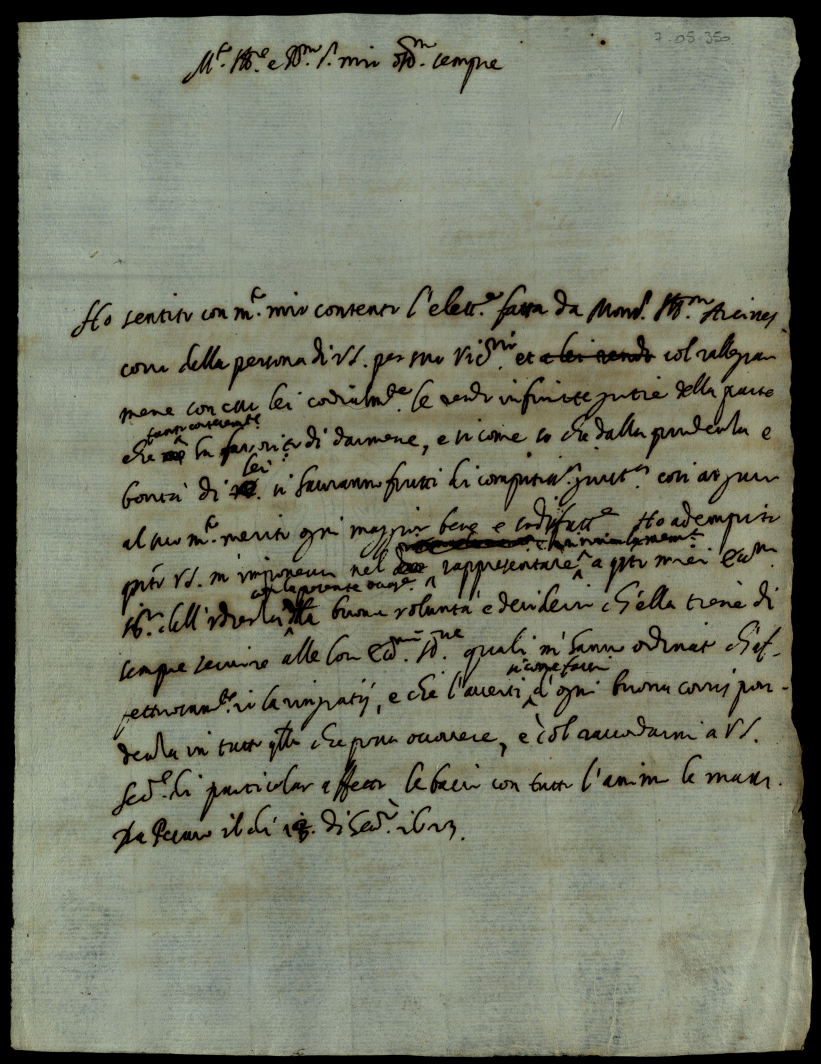 7-05-350
M.to Ill.re e R.mo S.r mio oss.mo sempre
Ho sentito con m.to mio contento l'elett.e fatta da Mons.r Ill.mo Arcives
covo della persona di VS. per suo Vic.rio et a lei rendo col rallegrar
mene con cui lei cordialm.te le rendo infinite gratie della parte
tanto cortesem.te
che ha favorito di darmene, e sì come so che dalla prudenza e
lei
bontà di VS. si havranno frutti di compita giust.a così auguro
al suo m.to merito ogni maggior bene e sodisfatt.e Ho adempito
q.to VS. m'imponeva nel rappresentare a q.ti miei Ecc.mi
con la presente occ.e
Ill.ri dell' della buona volontà e desiderio ch'ella tiene di
sempre servire alle loro Ecc.me Ill.me quali m'hanno ordinato ch'af-
si come faccio
fettuosam.te si la ringratij, e che l'accerti d'ogni buona corrispon-
denza in tutto q.llo che possa occorrere, e col raccordarmi a VS.
Ser.e di particolar affetto le bacio con tutto l'animo le mani.
Da Pesaro il dì 18. di Sett.e 1623.